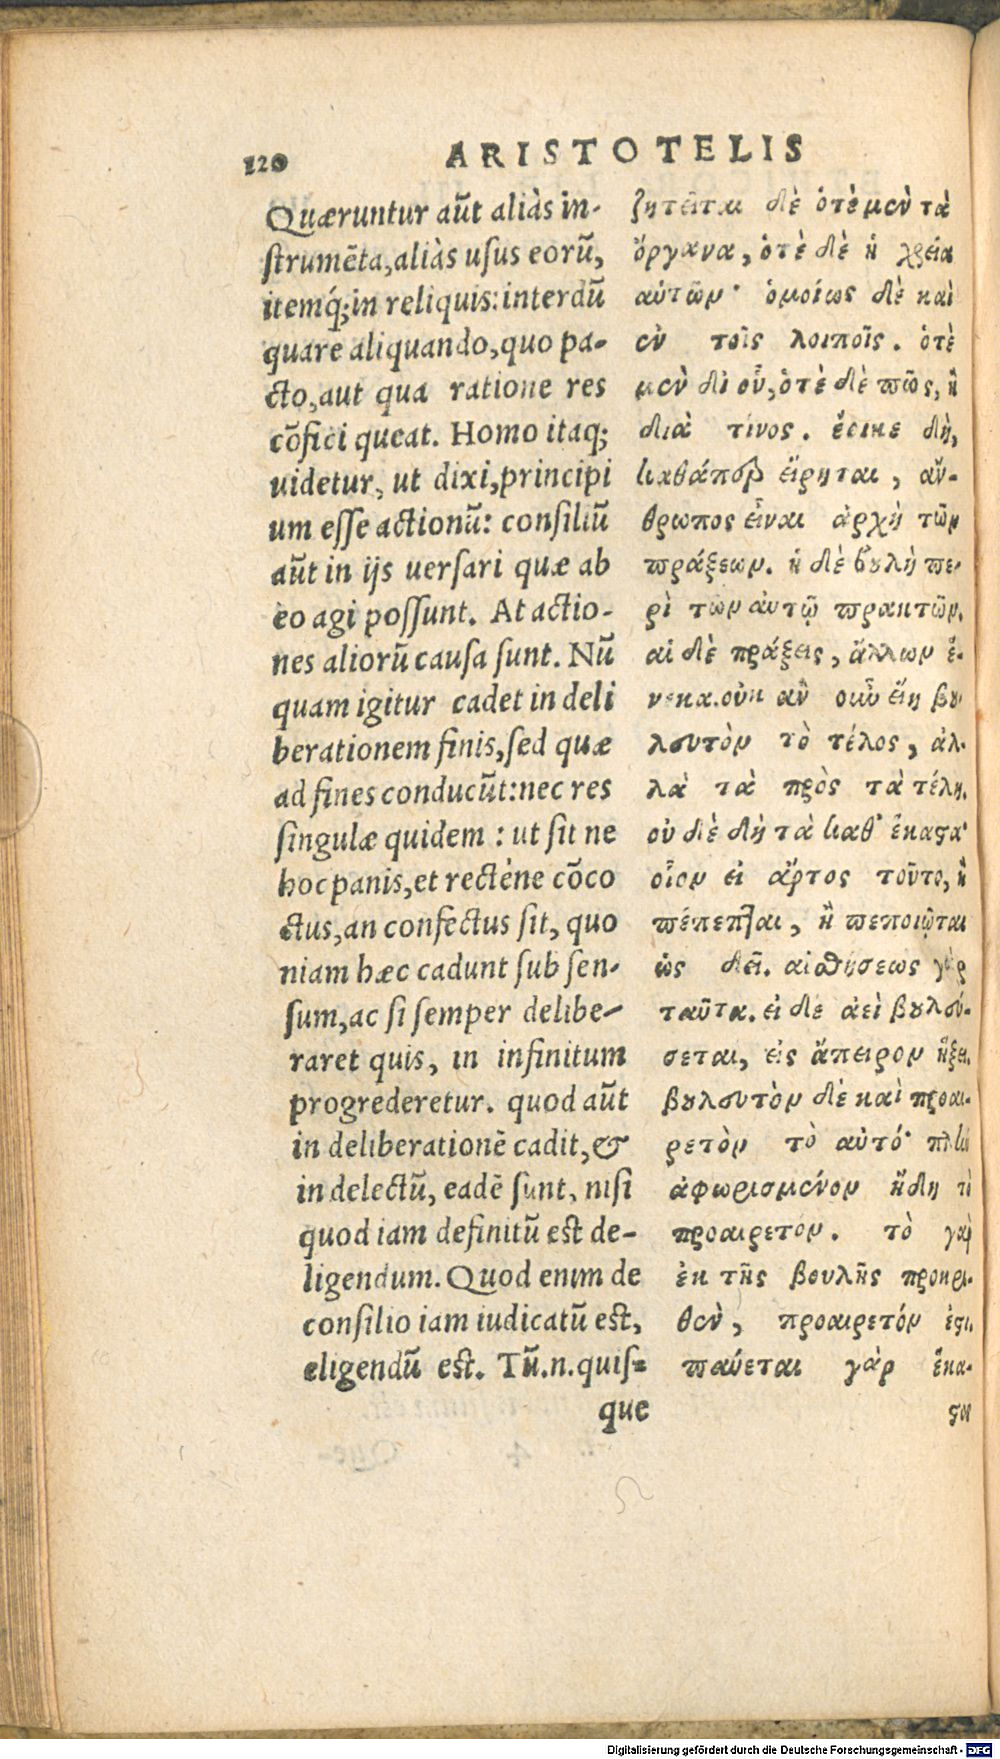 120
ARISTOTELIS
Quæruntur aũt aliàs in-
strumẽta, aliàs usus eorũ,
itemq́; in reliquis: interdũ
quare aliquando, quo pa-
cto, aut qua ratione res
cõfici queat. Homo itaq;
uidetur, ut dixi, principi
um esse actionũ: consiliũ
aũt in ijs uersari quæ ab
eo agi possunt. At actio-
nes aliorũ causa sunt. Nũ
quam igitur cadet in deli
berationem finis, sed quæ
ad fines conducũt: nec res
singulæ quidem: ut sit ne
hoc panis, et rectène cõco
ctus, an confectus sit, quo
niam hæc cadunt sub sen-
sum, ac si semper delibe-
raret quis, in infinitum
progrederetur. quod aũt
in deliberationẽ cadit, &
in delectũ, eadẽ sunt, nisi
quod iam definitũ est de-
ligendum. Quod enim de
consilio iam iudicatũ est,
eligendũ est. Tũ.n. quis-
que
ζητεῖται δὲ ὁτὲ μὲν τὰ
ὄργανα, ὁτὲ δὲ ἡ χρεία
αὐτῶν· ὁμοίως δὲ καὶ
ἐν τοῖς λοιποῖς. ὁτὲ
μὲν δι οὗ, ὁτὲ δὲ πῶς, ἢ
διὰ τίνος. ἔοικε δὴ,
καθάπερ εἴρηται, ἄν-
θρωπος εἶναι ἀρχὴ τῶν
πράξεων. ἡ δὲ βουλὴ πε-
ρὶ τῶν αὑτῷ πρακτῶν.
αἱ δὲ πράξεις, ἄλλων ἕ-
νεκα. οὐκ ἂν οὖν εἴη βου
λευτὸν τὸ τέλος, ἀλ-
λὰ τὰ πρὸς τὰ τέλη.
οὐδὲ δὴ τὰ καθ' ἕκαστα·
οἷον εἰ ἄρτος τοῦτο, ἢ
πέπεπται, ἢ πεποιῆται
ὡς δεῖ. αἰσθήσεως γὰρ
ταῦτα. εἰ δὲ ἀεὶ βουλεύ-
σεται, εἰς ἄπειρον ἥξει.
βουλευτὸν δὲ καὶ προαι-
ρετὸν τὸ αὐτό· πλὴν
ἀφωρισμένον ἤδη τὸ
προαιρετόν. τὸ γὰρ
ἐκ τῆς βουλῆς προκρι-
θὲν, προαιρετόν ἐστι.
παύεται γὰρ ἕκα-
στος
Digitalisierung gefördert durch die Deutsche Forschungsgemeinschaft - DFG